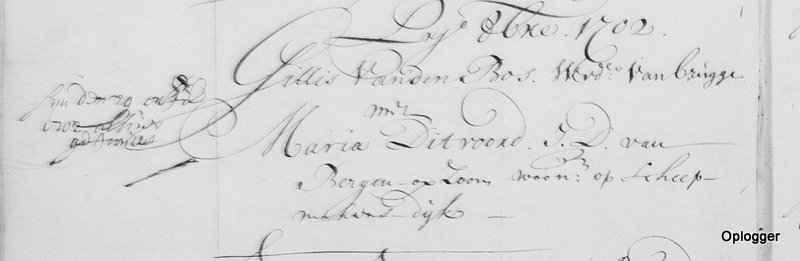 8bre 1702.
Gillis Vanden Bos. Wed.r Van brugge
met
Maria Ditvoord. J. D. van
Bergen-op Zoom woon: op Scheep-
makers dijk
den 29
1702 alhier
getrouwt
Oplogger